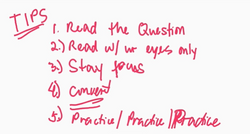 TIPS
1. Read the Question
2.) Read w/ ur eyes only
3.) Stay focus
4.) convert
5.) Practice / Practice / Practice